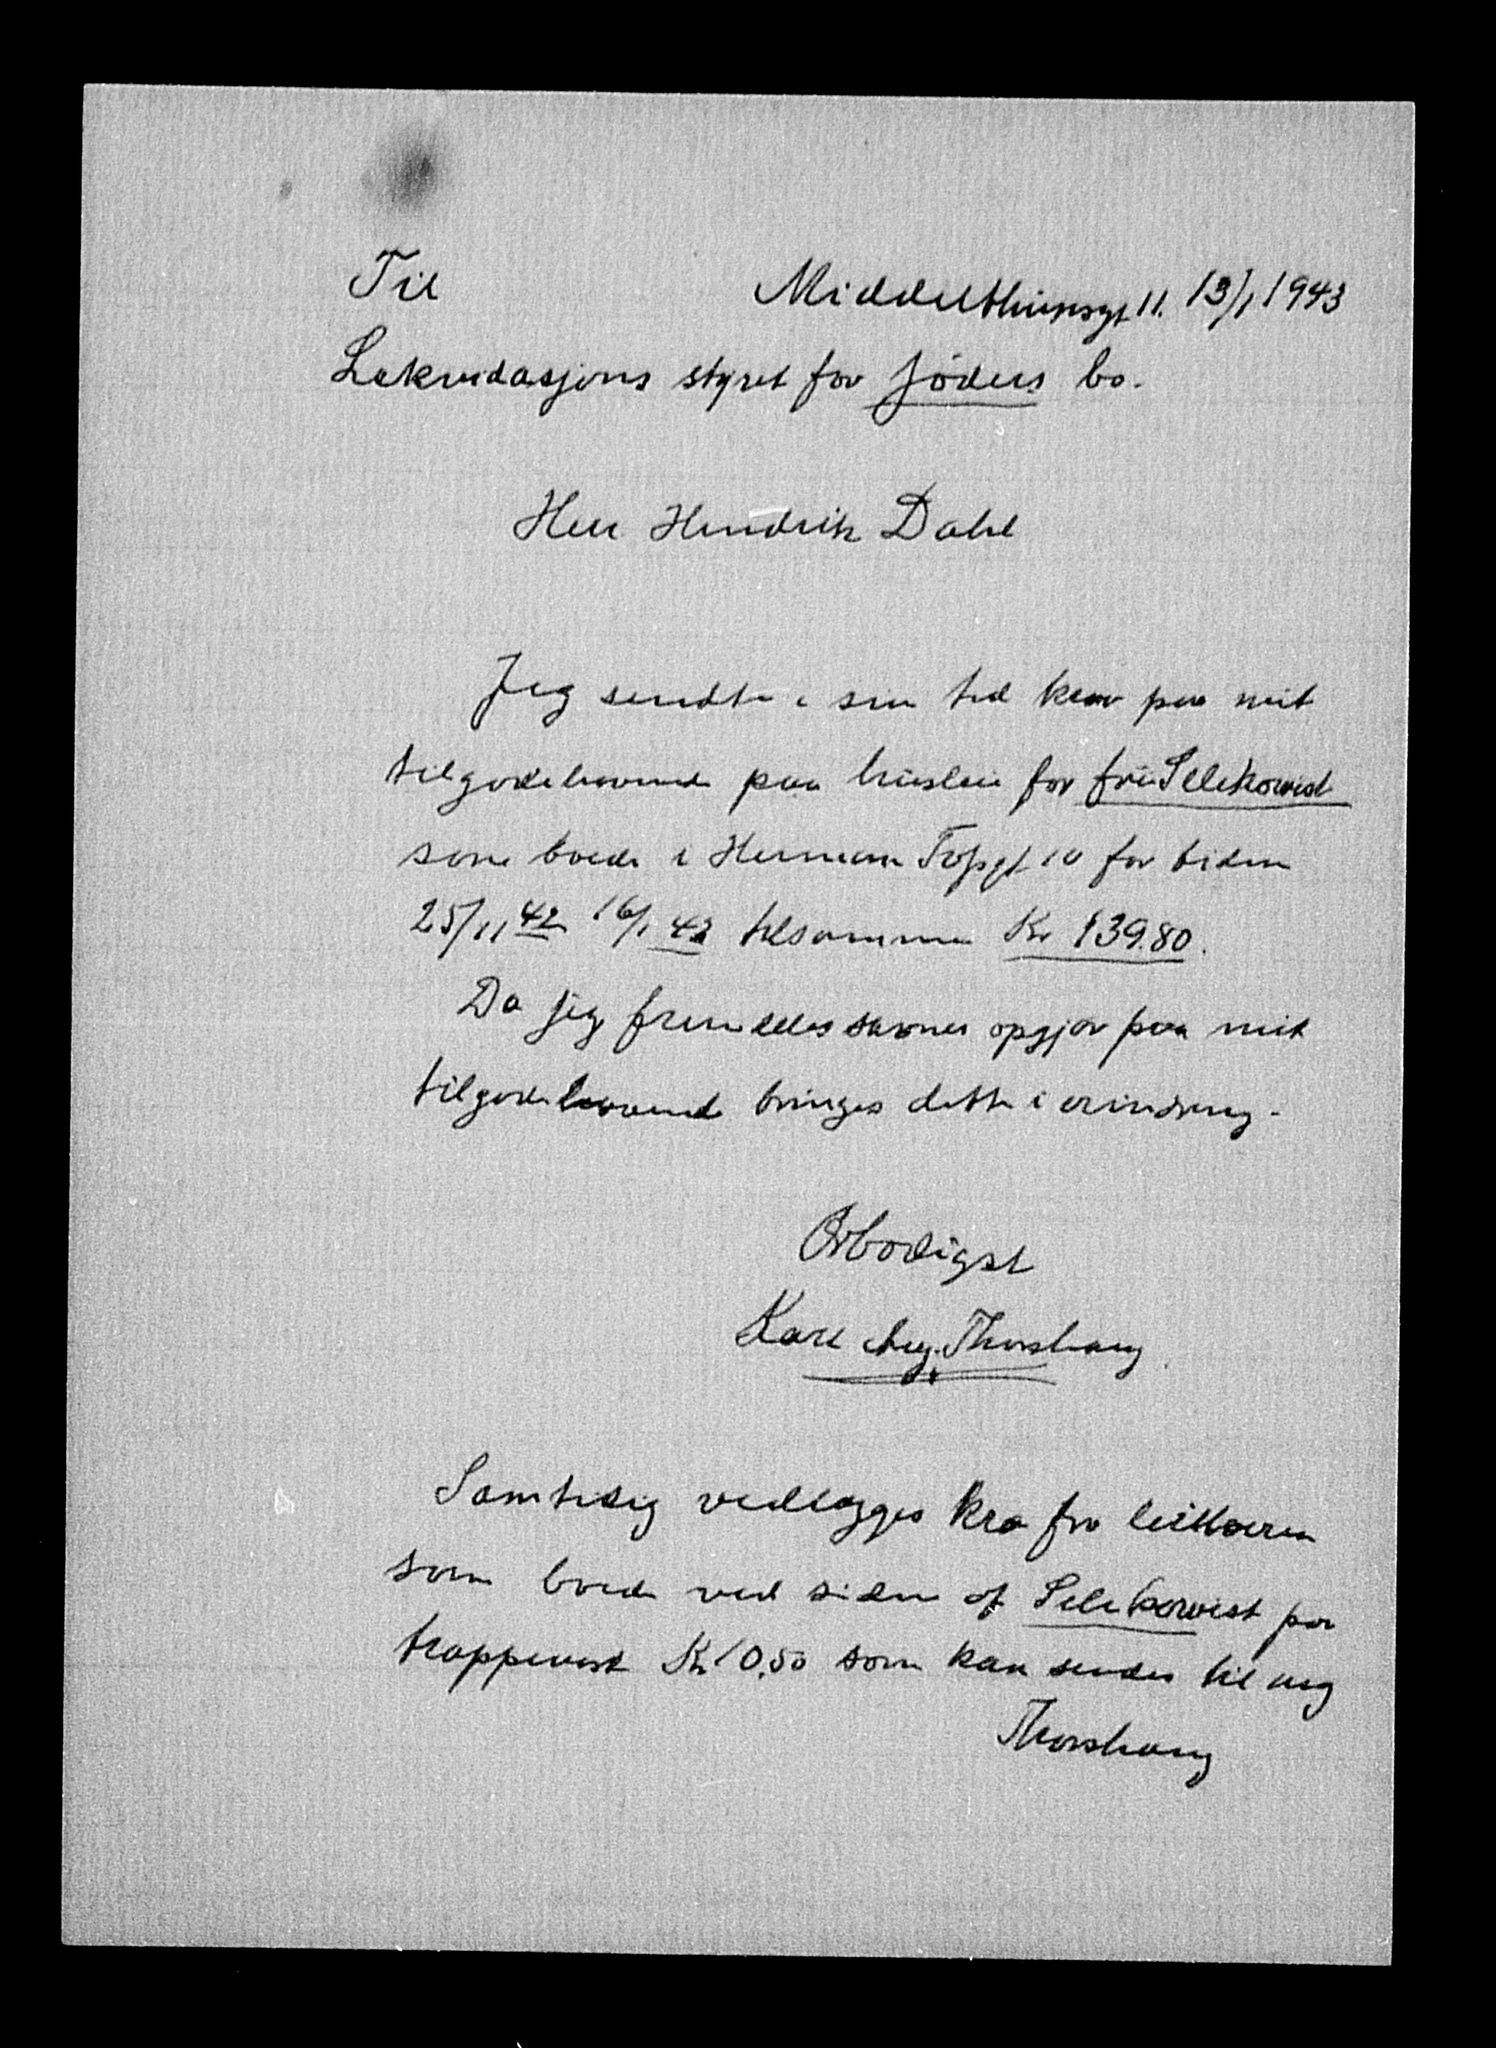 Til Middelthunsgt 11. 13/1 1943
Likvidasjons styret for jøders bo.
Herr Hendrik Dahl
Jeg sendte i sin tid krav paa mit
tilgodehavende paa husleie for frü Selikowist
som boede i Herman Fossgt 10 for tiden
25/11 42 16/1 43 tilsammen Kr 139.80.
Da jeg fremdeles savner opgjør paa mit
tilgodehavende bringes dette i erindring.
Ørbødigst
Karl Aug. Thorshaug
Samtidig vedlægges kra fra
som boede ved siden af Selikowist for
trappevask Kr 10.50 som kan sendes til mig
Thorshaug